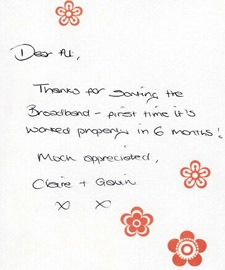 Dear Al,
Thanks for solving the
Broadband - first time it's
worked properly in 6 months!
Much appreciated,
Claire + Gavin
x x